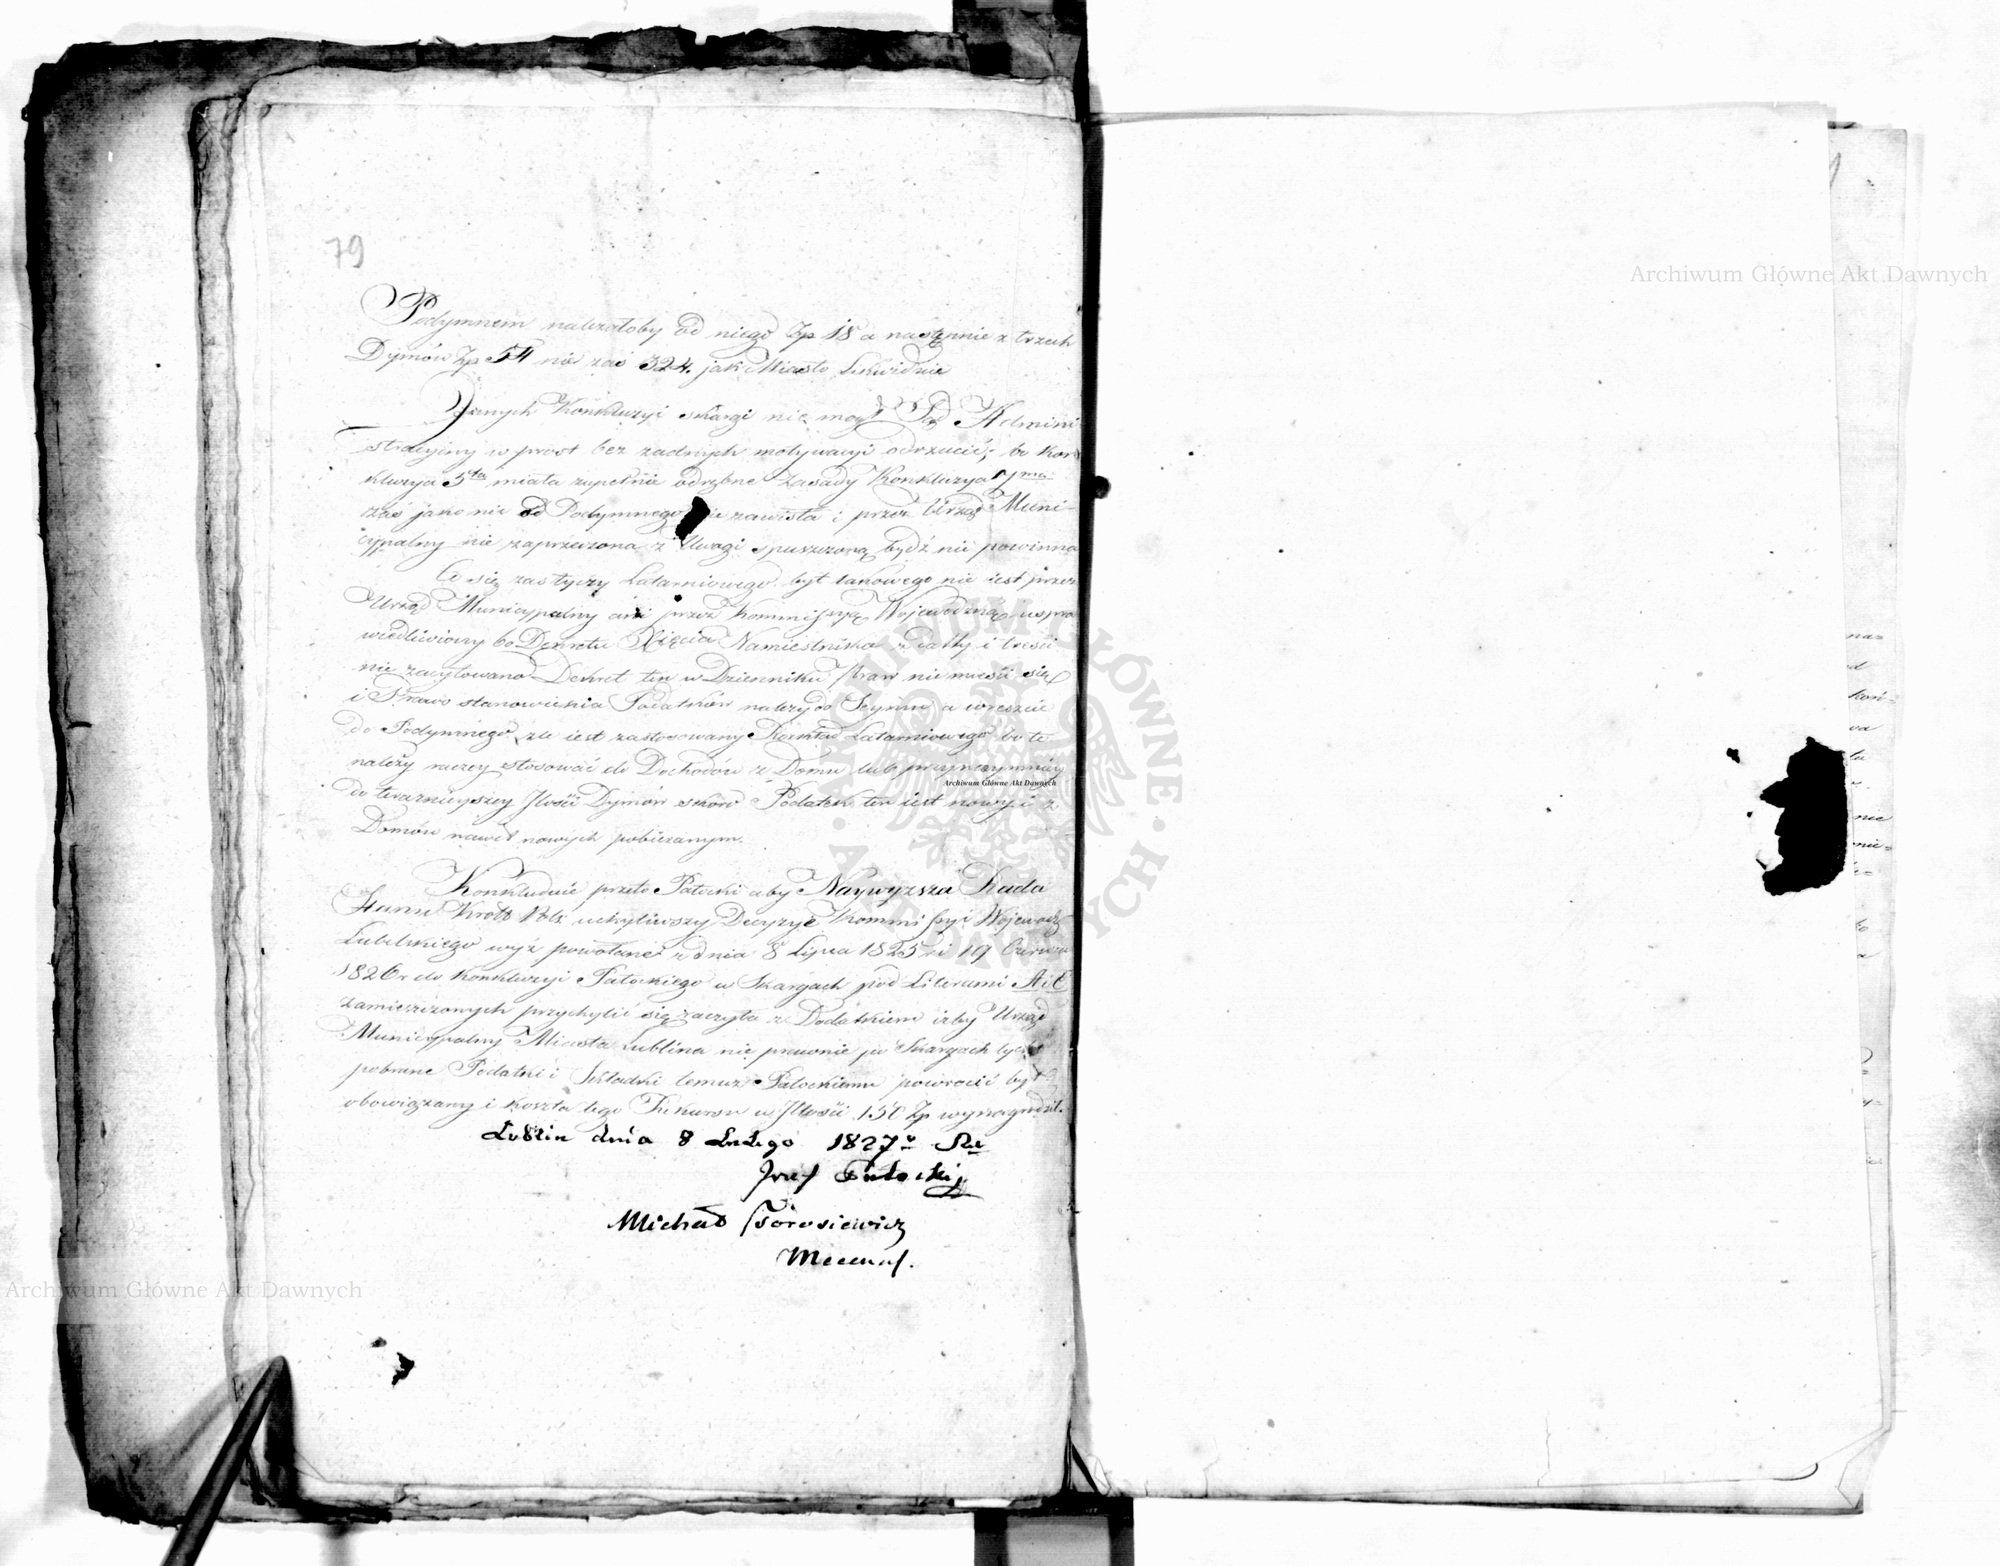 79
Podymnem należałoby od niego Zp 18 a następnie z trzech
Dymów Zp 54 nie zaś 324. jak Miasto Likwiduie
Innych Konkluzyi skargi nie mógł Sąd Admini
stracyiny w prost bez żadnych motywacyi odrzucić; bo Kon
kluzya 5ta miała zupełnie odrębne Zasady Konkluzya
zaś jako nie od Podymnego nie zawisła i przez Urząd Muni-
cypalny nie zaprzeczona z Uwagi spuszczoną bydź nie powinna
Co się zas tyczy Latarniowego byt takowego nie iest przez
Urząd Municypalny ani przez Kommissyą Wojewodzką uspra
wiedliwiony bo Dekretu Xięcia Namiestnika z datty i treści
nie zacytowano Dekret ten w Dzienniku Praw nie mieści się
i Prawo stanowienia Podatków należy do Seymu, a wreszcie
do Podymnego źle iest zastosowany Rozkład Latarniowego bo te
należy raczey stosować do Dochodów z Domu lub przynaymniey
do teraznieyszey Ilości Dymów skoro Podatek ten iest nowy i z
Domów nawet nowych pobieranym.
Konkluduie przeto Pałocki aby Naywyższa Rada
Stanu Krolt Polk uchyliwszy Decyzye Kommissyi Wojewodz
Lubelskiego wyż powołane z dnia 8 Lipca 1825 r i 19 Czerwca
1826 r do Konkluzyi Pałockiego w Skargach pod Literami A i C
zamieszczonych przychylić się raczyła z Dodatkiem iżby Urząd
Municypalny Miasta Lublina nie prawnie po Skargach tych
pobrane Podatki i Składki temuz Pałockiemu powrocić był
obowiązany i koszta tego Rekursu w Ilości 150 Zp wynagrodził.
Lublin dnia 8 Lutego 1827 r
Józef Pałocki
Michał
Mecenas.
Archiwum Główne Akt Dawnych
Archiwum Główne Akt Dawnych
Archiwum Główne Akt Dawnych